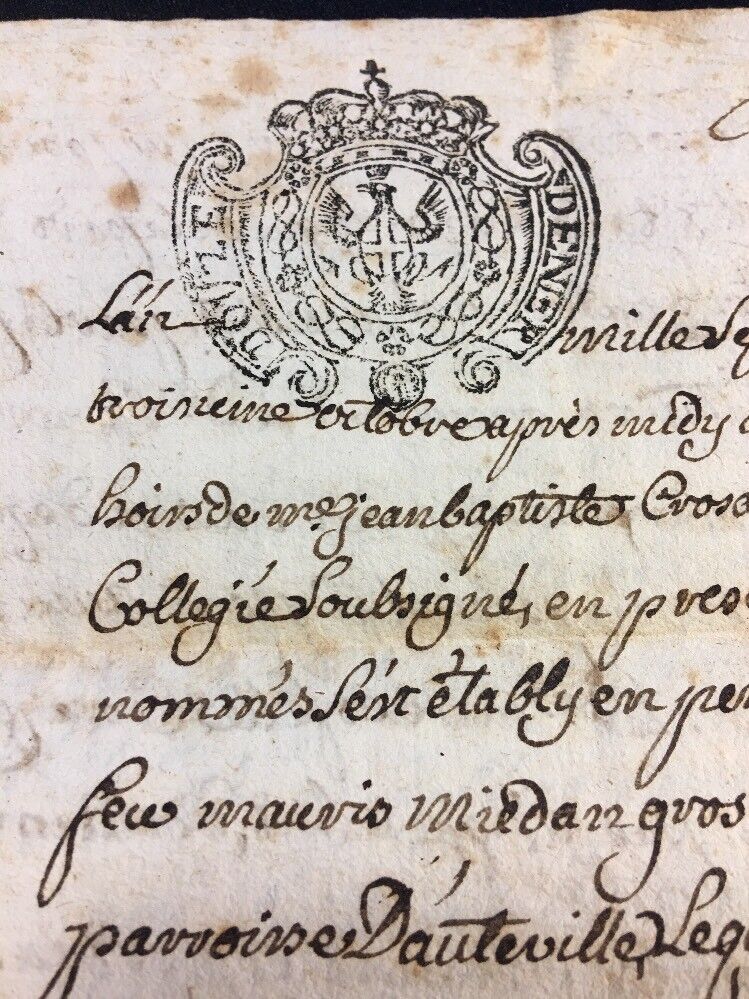 DOUZE DENIER
Lán mille
troisieme octobre après midy
hoirs de me jean baptiste Cros
Collegié soubsigné, en pres
nommés sést étably en per
feu mauris Miédan gros
parroisse Dáuteville, Leq